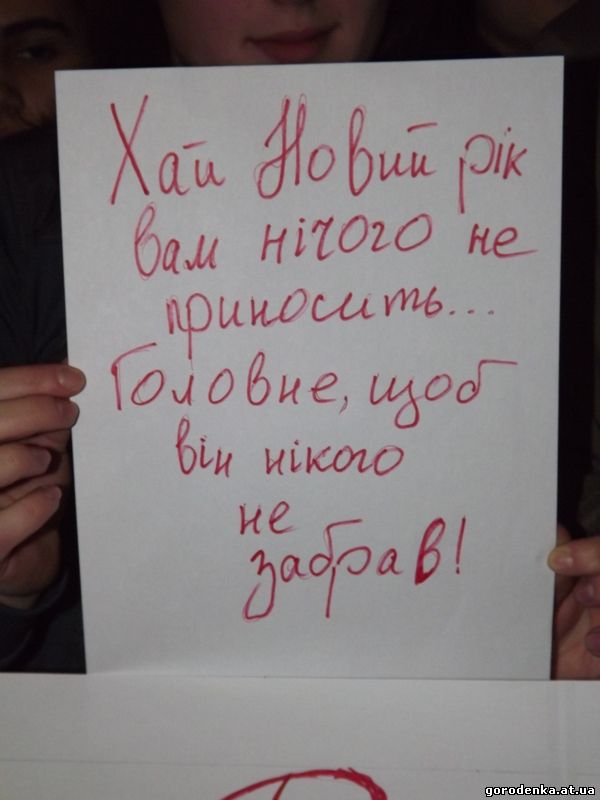 Хай Новий рік
вам нічого не
приносить...
Головне, щоб
він нікого
не
забрав!
gorodenka.at.ua